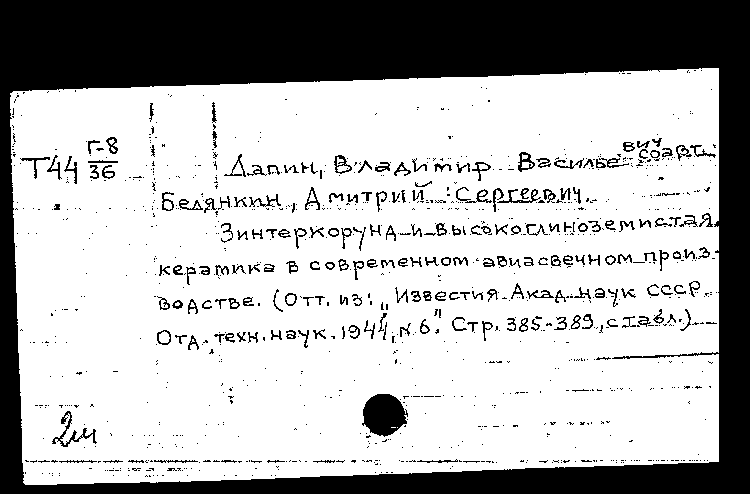 Т44 Г-8/36
Лапин, Владимир Василье-вич соавт.
Белянкин, Дмитрий Сергеевич.
Зинтеркорунд и высокоглиноземистая
керамика в современном авиасвечном произ-
водстве. (Отт. из: „Известия Акад. наук СССР
Отд. техн. наук. 1944, N 6". Стр. 385-389, с табл.)